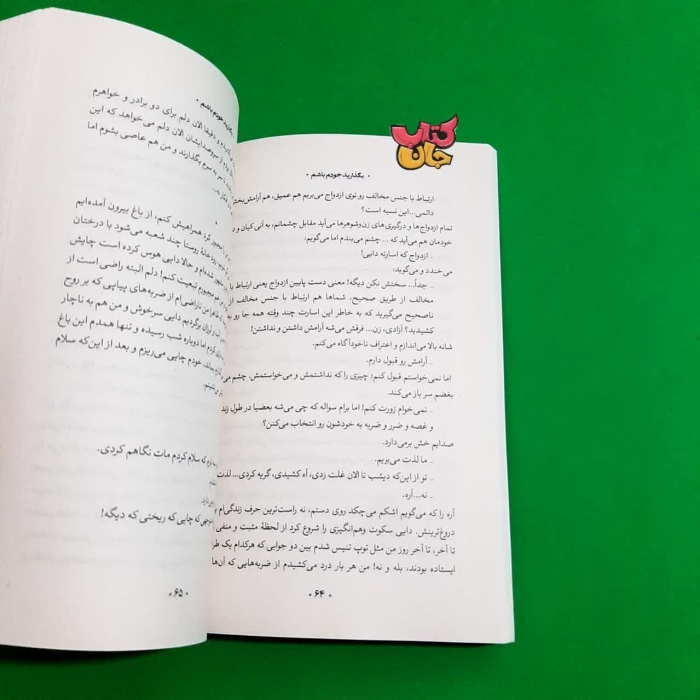 کتاب
جان
• بگذارید خودم باشم •
ارتباط با جنس مخالف رو توی ازدواج می‌بریم هم عمیق، هم آرامش‌بخش
دائمی...این نسیه است؟
تمام ازدواج‌ها و درگیری‌های زن‌وشوهرها می‌آید مقابل چشمانم، به آنی کیان و
خودمان هم می‌آید که ... چشم می‌بندم اما می‌گویم:
ـ ازدواج که اسارته دایی!
می‌خندد و می‌گوید:
ـ جداً... سختش نکن دیگه! معنی دست پایین ازدواج یعنی ارتباط با
مخالف از طریق صحیح، شماها هم ارتباط با جنس مخالف از
ناصحیح می‌گیرید که به خاطر این اسارت چند وقته همه جا رو به
کشیدید؟ آزادی، زن... فرقش می‌شه آرامش داشتن و نداشتن!
شانه بالا می‌اندازم و اعتراف ناخودآگاه می‌کنم.
ـ آرامش رو قبول دارم.
اما نمی‌خواستم قبول کنم! چیزی را که نداشتمش و می‌خواستمش. چشم می‌
بغضم سر باز می‌کند.
ـ نمی‌خوام زورت کنم! اما برام سواله که چی می‌شه بعضیا در طول زند
و غصه و ضرر و ضربه به خودشون رو انتخاب می‌کنن؟
صدایم خش برمی‌دارد.
ـ ما لذت می‌بریم.
ـ تو از این‌که دیشب تا الان غلت زدی، آه کشیدی، گریه کردی... لذت
ـ نه...آره.
آره را که می‌گویم اشکم می‌چکد روی دستم، نه راست‌ترین حرف زندگی‌ام
دروغ‌ترینش. دایی سکوت وهم‌انگیزی را شروع کرد از لحظهٔ مثبت و منفی
تا آخر، تا آخر روز من مثل توپ تنیس شدم بین دو جوابی که هرکدام یک طر
ایستاده بودند، بله و نه! من هر بار درد می‌کشیدم از ضربه‌هایی که آن‌ها
• ۶۴ •
بگذارید خودم باشم •
دقیقا الان دلم برای دو برادر و خواهرم
سروصدایشان الان دلم می‌خواهد که این
سر به سرم بگذارند و من هم عاصی بشوم اما
کرد همراهیش کنم، از باغ بیرون آمده‌ایم
رودخانهٔ روستا چند شعبه می‌شود با درختان
شده‌ام و حالا دایی هوس کرده است چایش
مجبورم تبعیت کنم! دلم البته راضی است از
ناراضی‌ام از ضربه‌های پیاپی که بر روح
برگردیم دایی سرخوش و من هم به ناچار
اما دوباره شب رسیده و تنها همدم این باغ
خودم چایی می‌ریزم و بعد از این‌که سلام
که سلام کردم مات نگاهم کردی.
که چایی که ریختی که دیگه!
• ۶۵ •